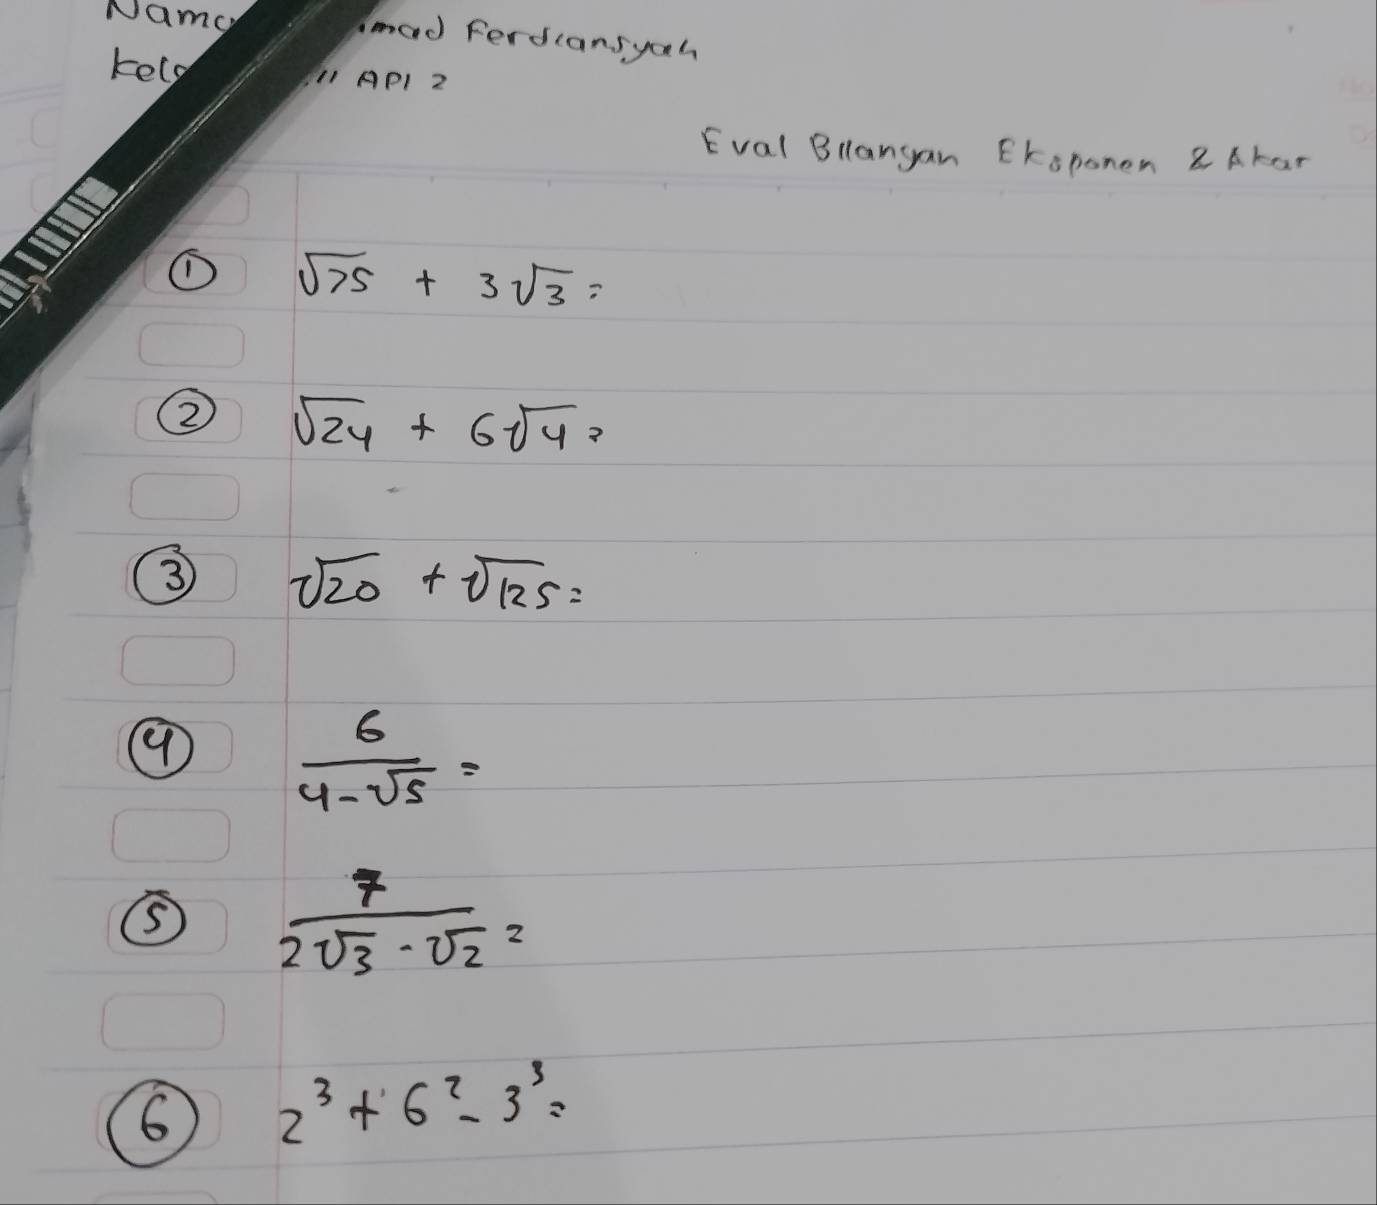 Nama mad Ferdiansyah
Kela 11 API 2
Eval Bilangan Eksponen & Akar
① √75 + 3√3 =
② √24 + 6√4 =
③ √20 + √125 =
④ 6
4-√5 =
⑤ 7
2√3 - √2 =
⑥ 2³ + 6² - 3³ =